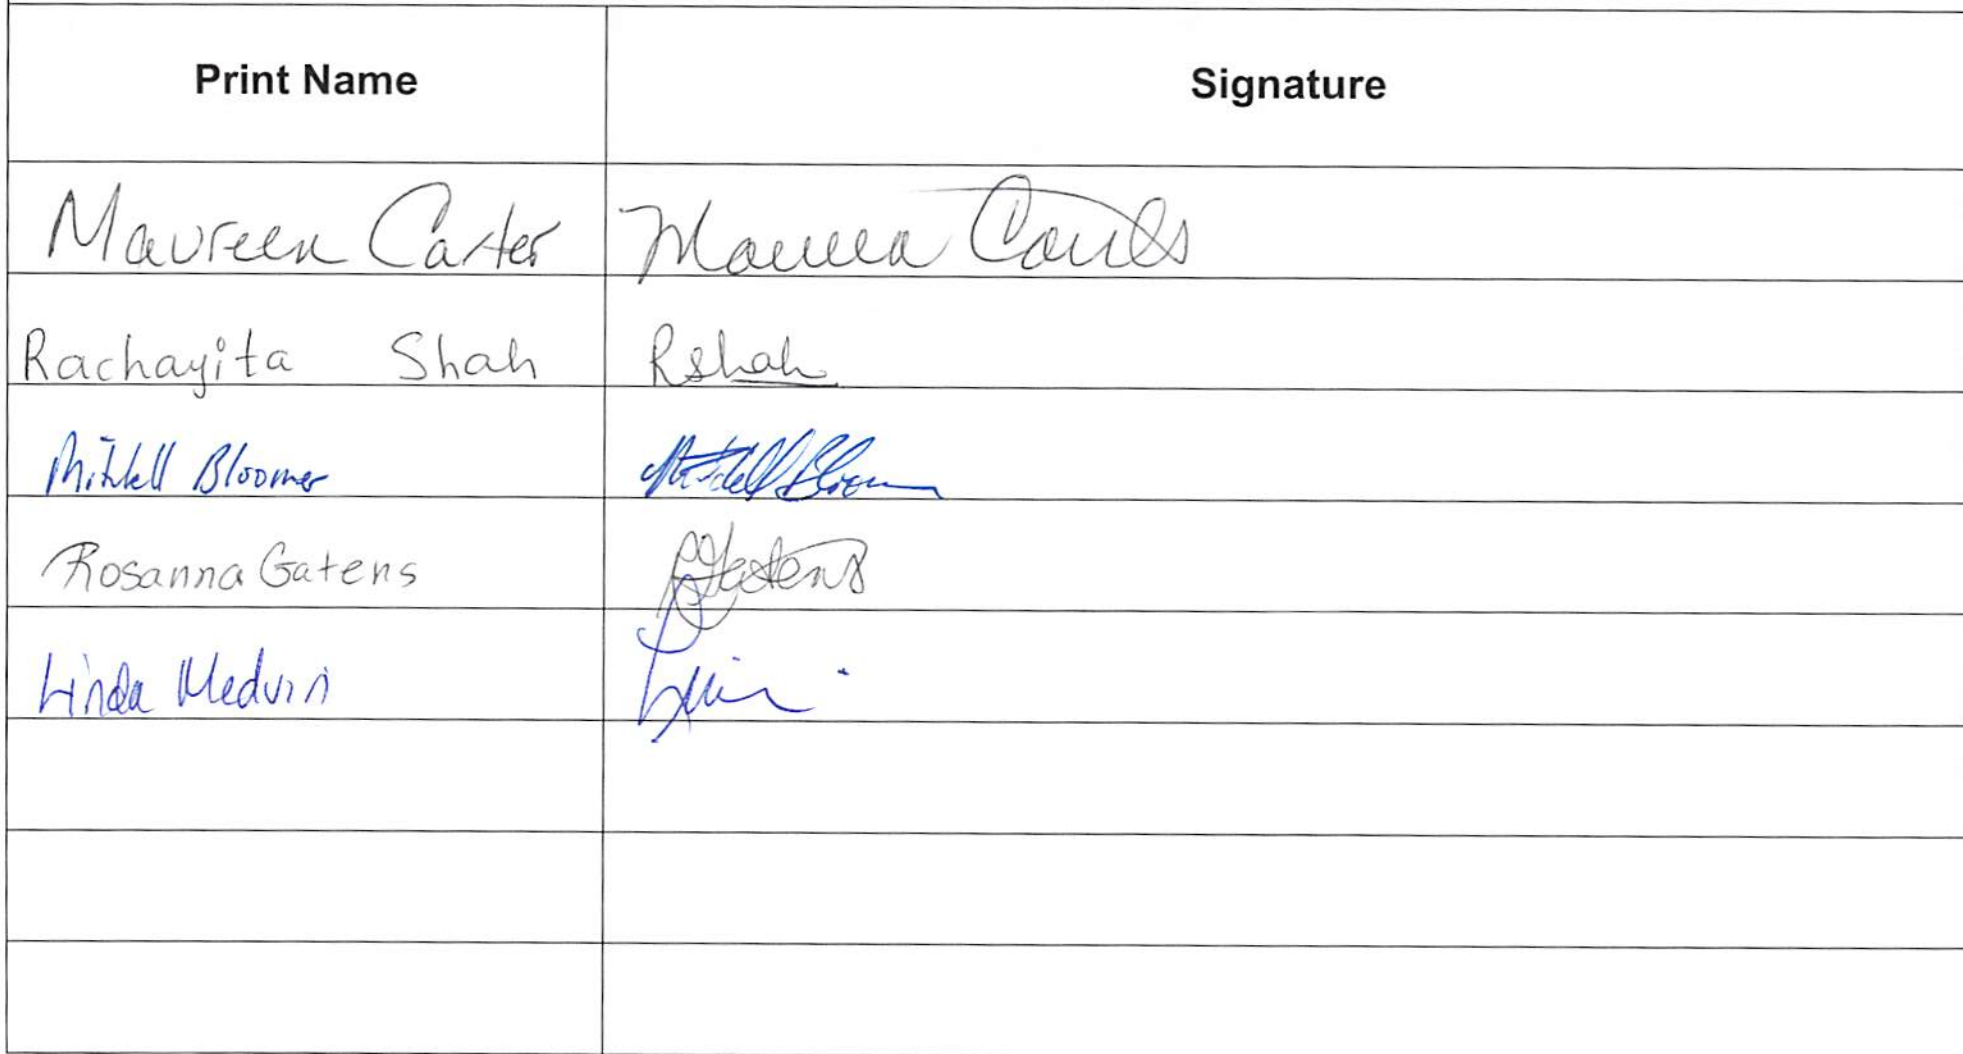 Print Name Signature
Maureen Carter Maureen Carter
Rachayita Shah RShah
Mitchell Bloomer Mitchell Bloomer
Rosanna Gatens RGatens
Linda Medvin